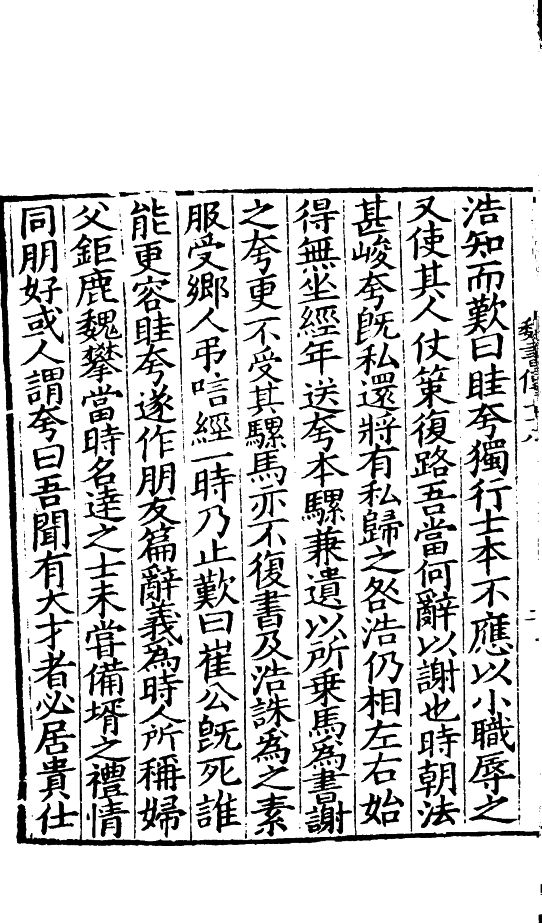 浩知而歎曰眭夸獨行士本不應以小職辱之
又使其人仗策復路吾當何辭以謝也時朝法
甚峻夸旣私還將有私歸之咎浩仍相左右始
得無坐經年送夸本騾兼遺以所乘馬為書謝
之夸更不受其騾馬亦不復書及浩誅為之素
服受鄉人弔唁經一時乃止歎曰崔公旣死誰
能更容眭夸遂作朋友篇辭義為時人所稱婦
父鉅鹿魏攀當時名達之士未嘗備壻之禮情
同朋好或人謂夸曰吾聞有大才者必居貴仕